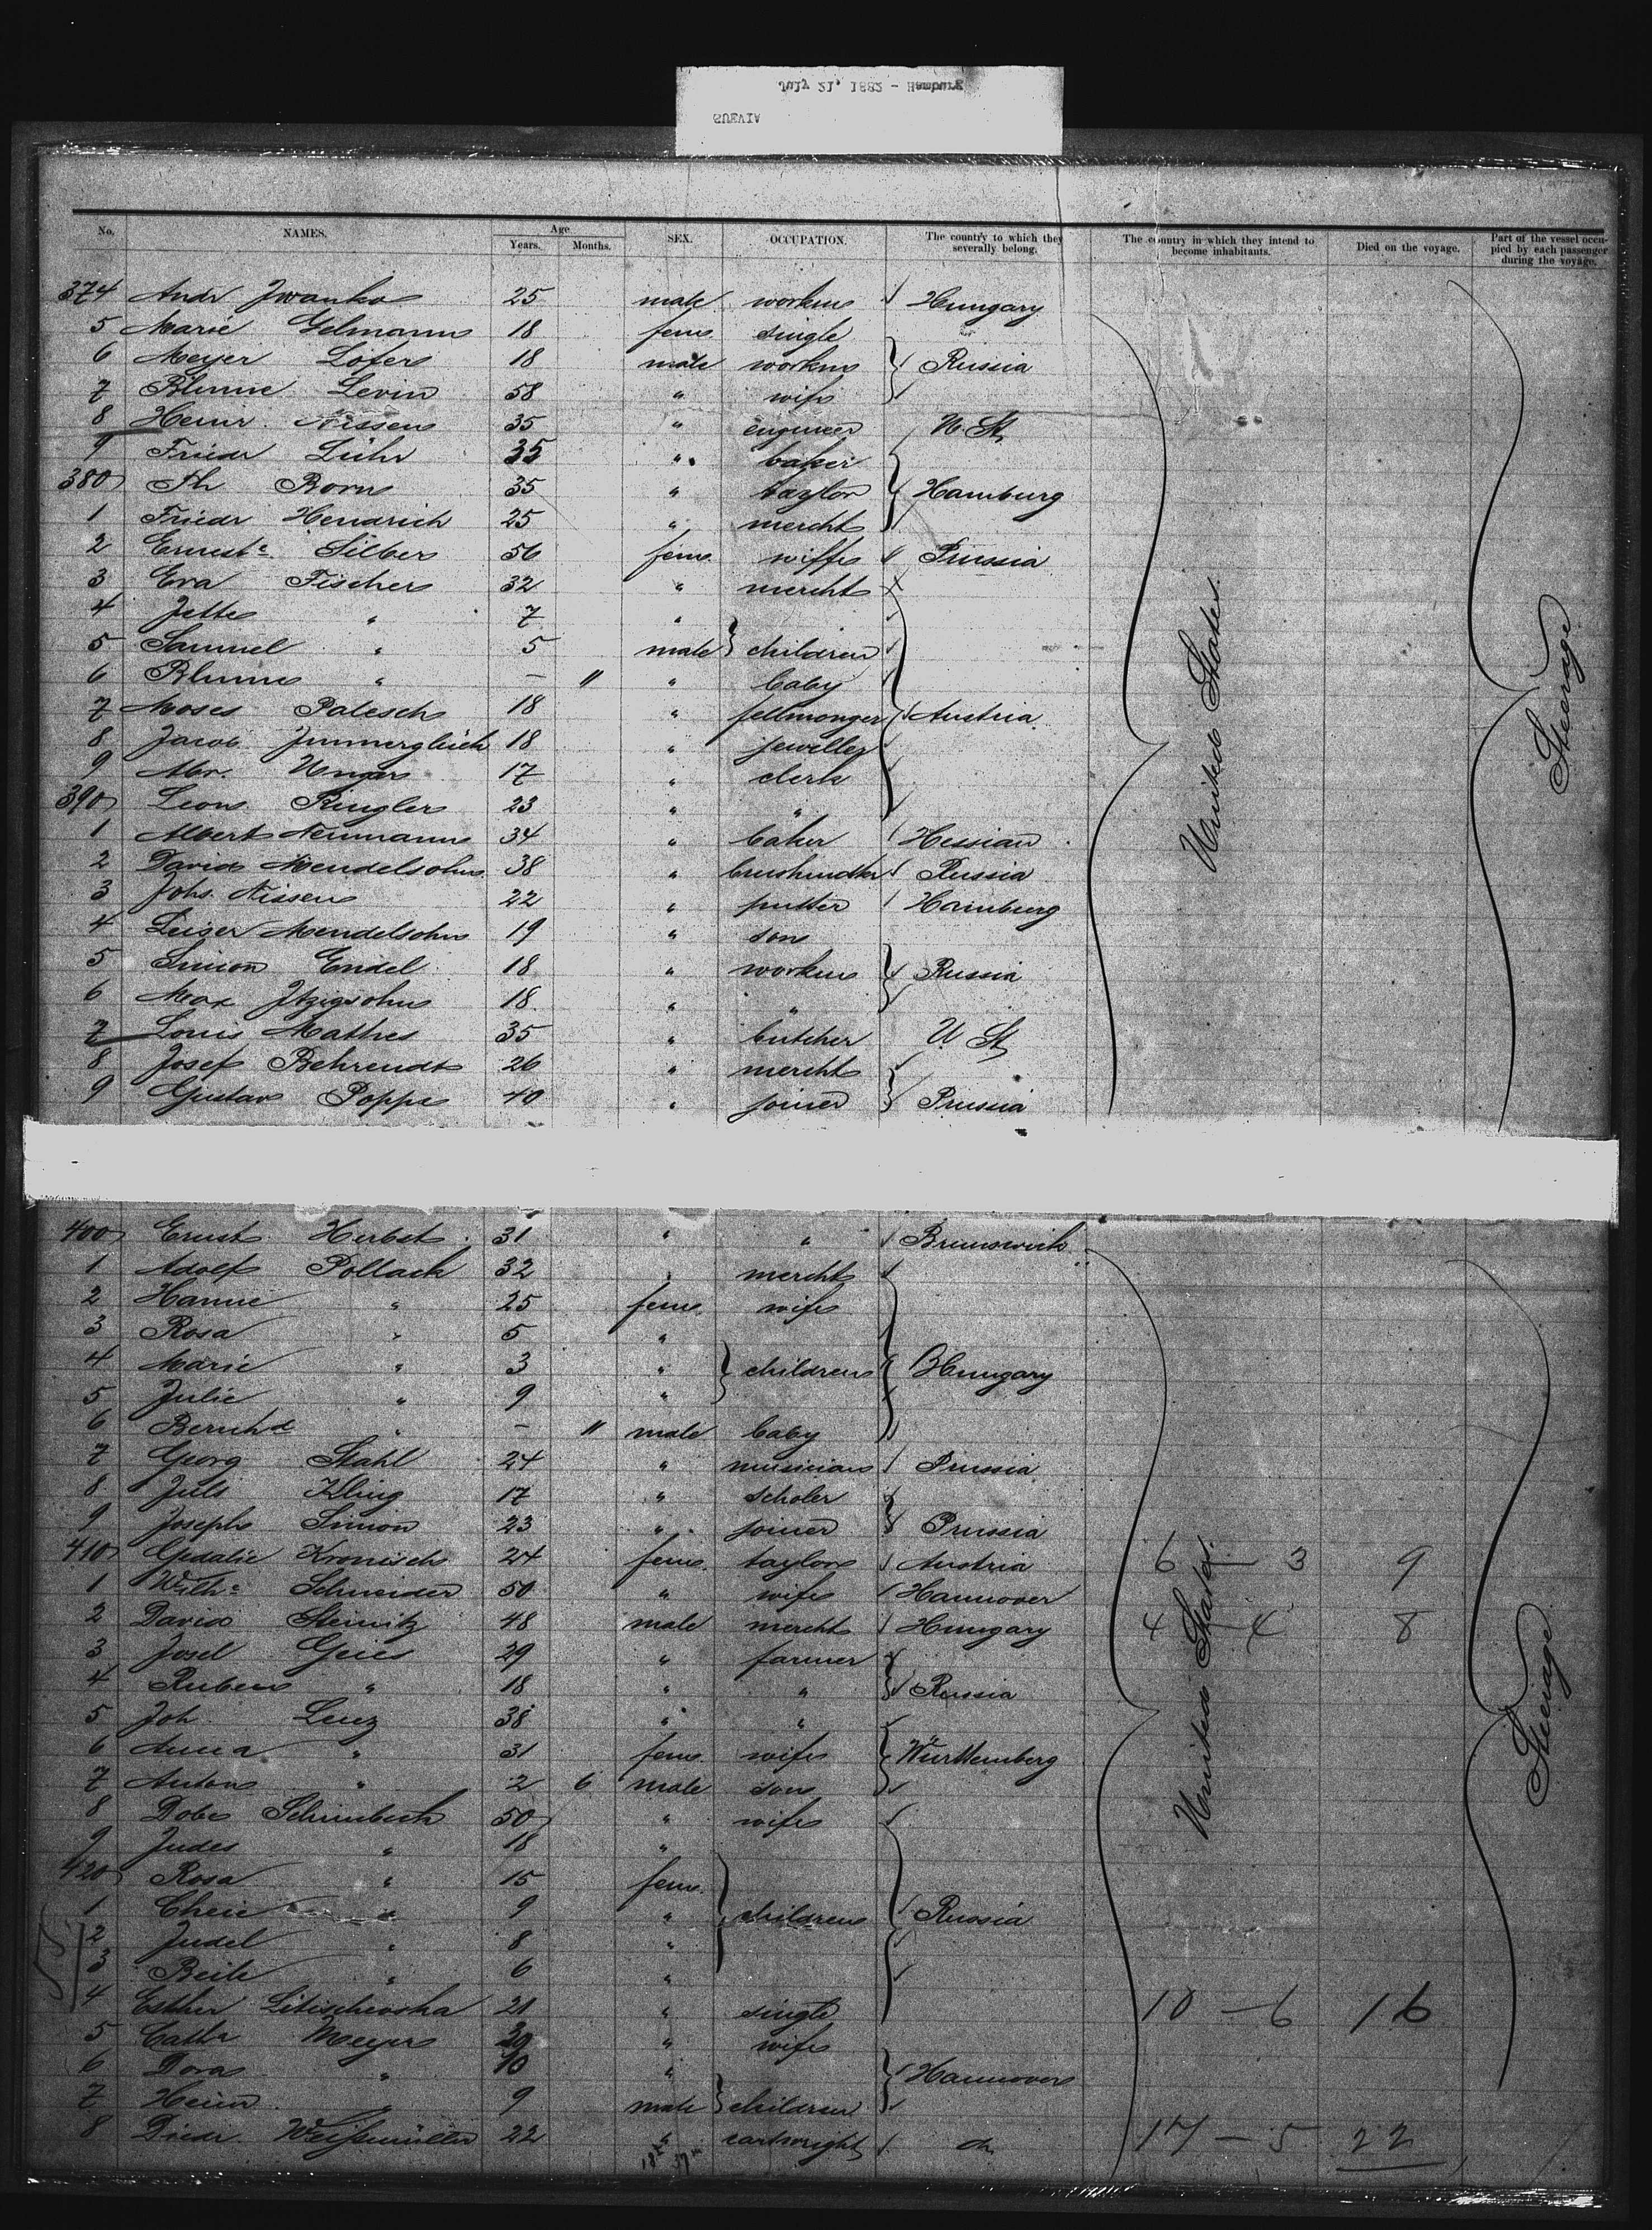 July 21, 1882 - Hamburg
SUEVIA
No. NAMES. Age. Years. Months. SEX. OCCUPATION. The country to which they severally belong. The country in which they intend to become inhabitants. Died on the voyage. Part of the vessel occupied by each passenger during the voyage.
374 Andr Iwanko 25 male workm Hungary
5 Marie Gelmann 18 fem single
6 Meyer Lofer 18 male workm Russia
7 Blume Levin 58 " wife
8 Heinr. Nissen 35 " engineer U. St
9 Friedr Lühr 35 " baker
380 Th Born 35 " taylor Hamburg
1 Friedr Hendrich 25 " mercht
2 Ernest Silber 56 fem. wiffe Prussia
3 Eva Fischer 32 " mercht
4 Jette " 7 "
5 Samuel " 5 male children
6 Blume " – 11 " baby
7 Moses Palesch 18 " fellmonger Austria
8 Jacob Immerglück 18 " jeweller
9 Abr. Unger 17 " clerk
390 Leon Ringler 23 " "
1 Albert Neumann 34 " baker Hessian
2 David Mendelsohn 38 " Russia
3 Johs. Nissen 22 " putter Hamburg
4 Leiser Mendelsohn 19 " son
5 Simon Endel 18 " workm Russia
6 Max Itzigsohn 18 " "
7 Louis Mathes 35 " butcher U St
8 Josef Behrendt 26 " mercht
9 Gustav Poppe 40 " joiner Prussia
United States
Steerage
400 Ernst Herbst 31 " " Brunswick
1 Adolf Pollack 32 " mercht
2 Hanne " 25 fem. wife
3 Rosa " 5 "
4 Marie " 3 " children Hungary
5 Julie " 9 "
6 Bernhd " – 11 male baby
7 Georg Stahl 24 " musician Prussia
8 Juls Kling 17 " scholer
9 Joseph Simon 23 " joiner Prussia
410 Gedalie Kronisch 24 fem. taylor Austria 6 – 3 9
1 Wilh Schneider 50 " wife Hannover
2 David Steinitz 48 male mercht Hungary 4 – 4 8
3 Josel Geies 29 " farmer
4 Ruben " 18 " " Russia
5 Joh. Lenz 38 " "
6 Anna " 31 fem. wife Württemberg
7 Anton " 2 6 male son
8 Dobe Schimbeck 50 " wife
9 Judes " 18 "
420 Rosa " 15 fem.
1 Cheie " 9 " children Russia
2 Judel " 8 "
3 Beile " 6 "
4 Esther Litischewska 21 " single 10 – 6 16
5 Cathr Meyer 39 " wife
6 Dora " 10 " Hannover
7 Heinr. " 9 male children
8 Diedr. Weißmüller 22 " cartwright do 17 – 5 22
United States
Steerage